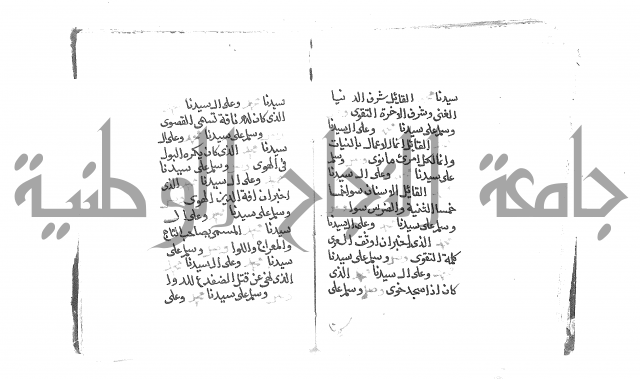 سيدنا القائل شرف الدنيا
الغنى وشرف الاخرة التقوى
وسلم على سيدنا وعلى ال سيدنا
القائل انما الاعمال بالنيات
وانما لكل امرئ ما نوى وسلم
على سيدنا وعلى ال سيدنا
القائل الاسنان سوا
خمسا الثنية والضرس سوا
وسلم على سيدنا وعلى ال سيدنا
الذى اخبر ان اوثق العرى
كلمة التقوى وسلم على سيدنا
وعلى ال سيدنا الذى
كان اذا سجد خوى وسلم على
سيدنا وعلى ال سيدنا
الذى كان له ناقة تسمى القصوى
وسلم على سيدنا وعلى ال
سيدنا الذى كان يكره البول
فى الهوى وسلم على سيدنا
وعلى ال سيدنا الذى
اخبر ان افة الدين الهوى
وسلم على سيدنا وعلى ال
سيدنا المسمى بصاحب التاج
والمعراج واللوا وسلم على
سيدنا وعلى ال سيدنا
الذى نهى عن قتل الضفدع للدوا
وسلم على سيدنا وعلى
جامعة النجاح الوطنية